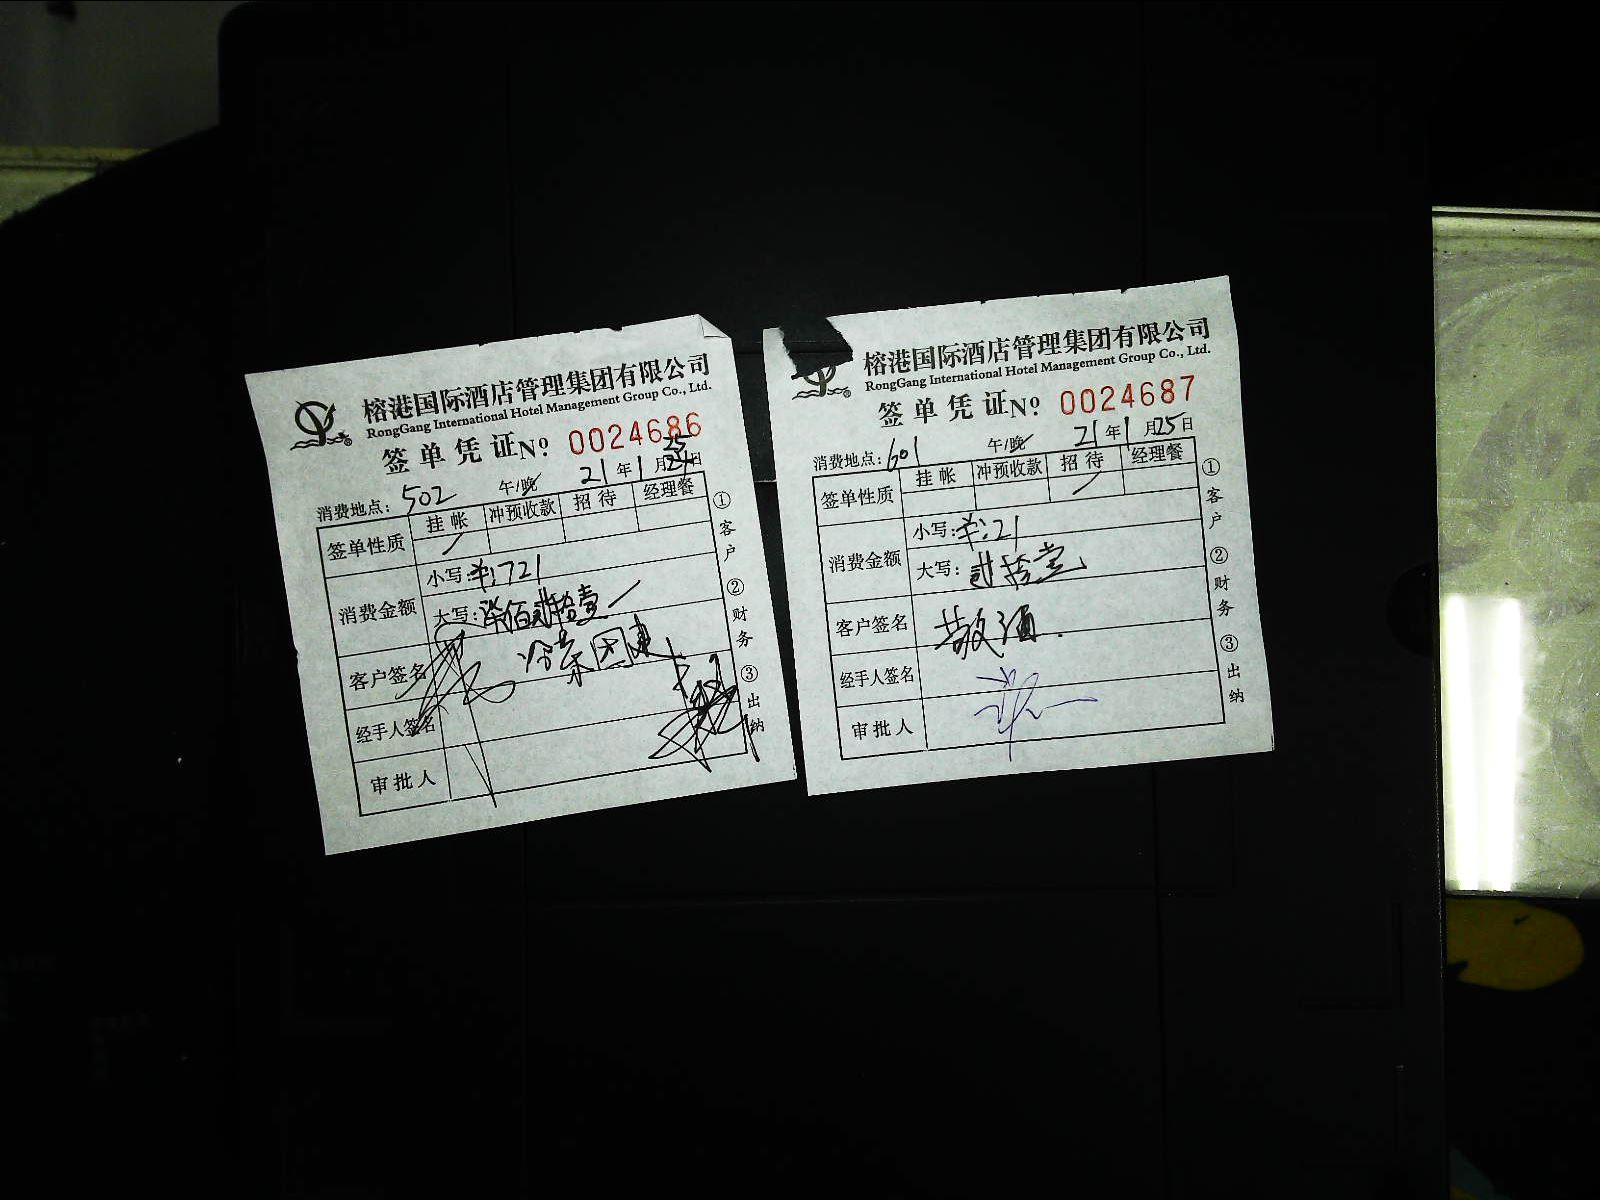 榕港国际酒店管理集团有限公司
RongGang International Hotel Management Group Co., Ltd.
签单凭证 No: 0024686
消费地点: 502 午/晚 21年1月25日
签单性质 挂帐 冲预收款 招待 经理餐
消费金额 小写: ¥:721
大写: 柒佰贰拾壹
客户签名 冷菜团建
经手人签名
审批人
①客户 ②财务 ③出纳
榕港国际酒店管理集团有限公司
RongGang International Hotel Management Group Co., Ltd.
签单凭证 No: 0024687
消费地点: 601 午/晚 21年1月25日
签单性质 挂帐 冲预收款 招待 经理餐
消费金额 小写: ¥:21
大写: 贰拾壹
客户签名 敬酒.
经手人签名
审批人
①客户 ②财务 ③出纳